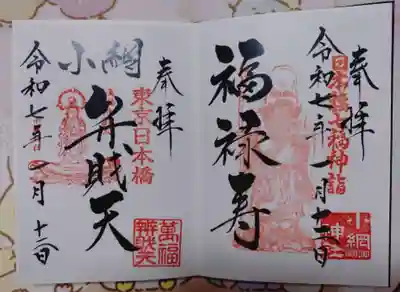 奉拝
日本橋七福神詣
福禄寿
令和七年一月十二日
小網神社
奉拝
東京日本橋
小網
弁財天
萬福
辨財天
令和七年一月十二日